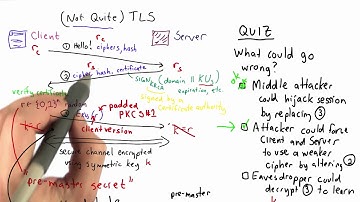 (Not Quite) TLS
Client
Server
r_c
r_c
① Hello! ciphers, host
r_s
r_s
② cipher, hash, certificate
SIGN_KR_CA (domain || KU_S)
expiration, etc.
verify certificate
signed by a
certificate authority
random
padded
PKCS#1
client version
secure channel encrypted
using symmetric key k
"pre-master secret"
pre-master
QUIZ
What could go
wrong?
Middle attacker
could hijack session
by replacing ③
Attacker could force
Client and Server
to use a weaker
cipher by altering ②
Eavesdropper could
decrypt ③ to learn